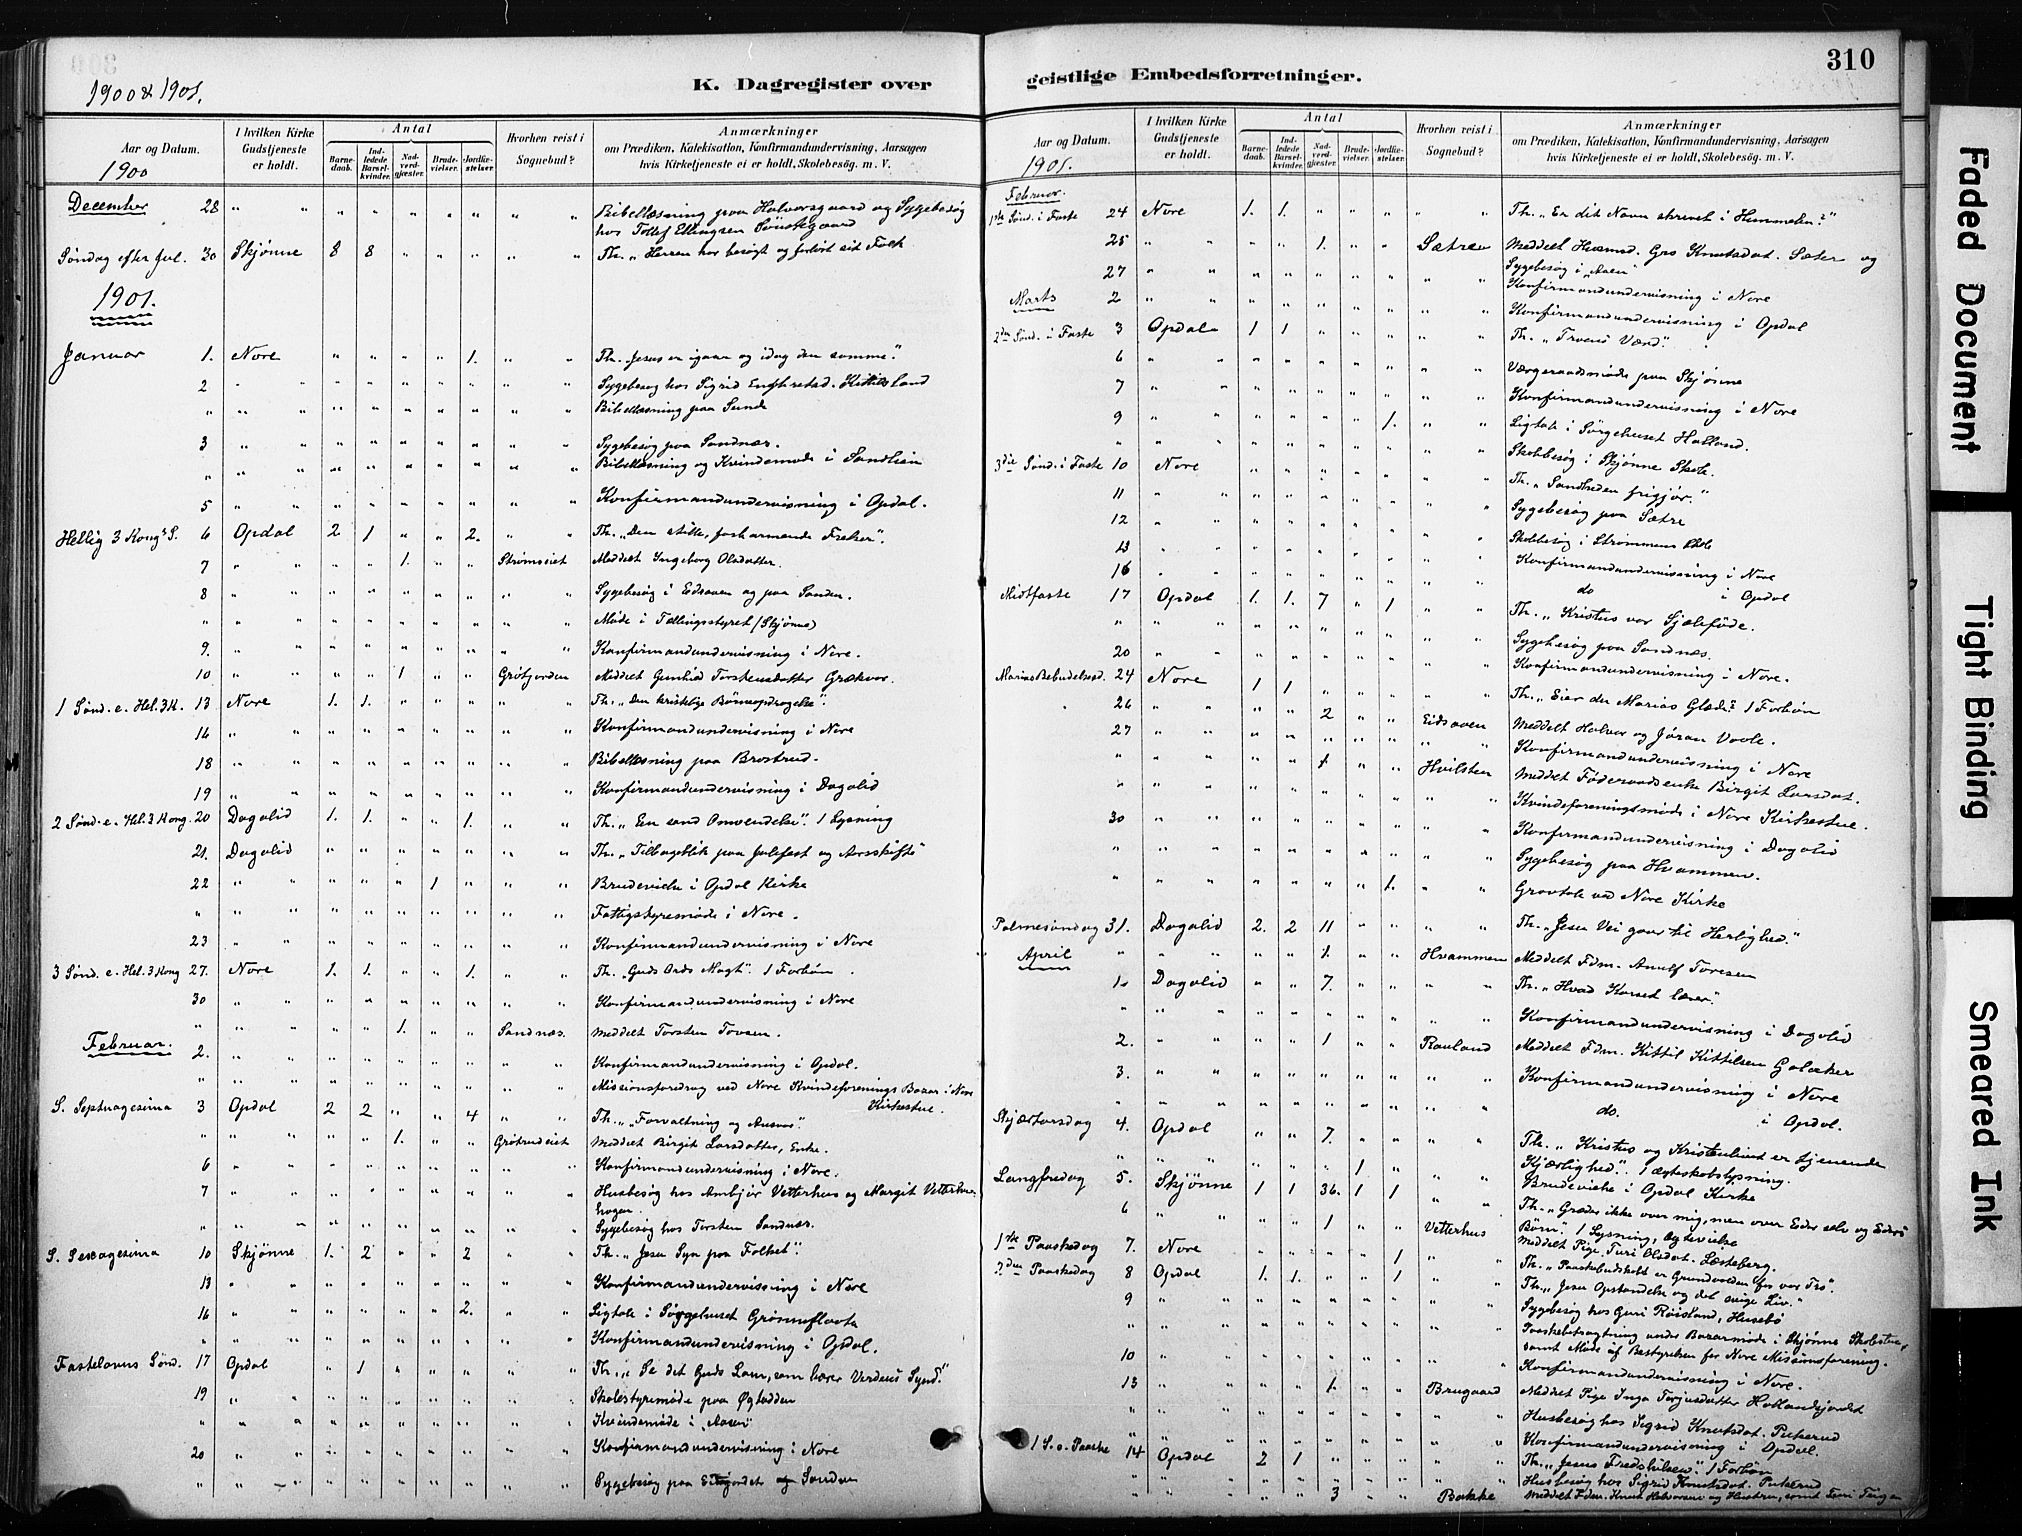 310
1900 & 1901.
K. Dagregister over
geistlige Embedsforretninger.
Aar og Datum.
1900
I hvilken Kirke Gudstjeneste er holdt.
Antal
Barnedaab.
Indledede Barselkvinder.
Nadverdgjæster.
Brudevielser.
Jordfæstelser.
Hvorhen reist i Sognebud?
Anmærkninger
om Prædiken, Katekisation, Konfirmandundervisning, Aarsagen
hvis Kirketjeneste ei er holdt, Skolebesøg. m. V.
December 28 " " " " " " " " " Bibellæsning paa Halvorsgaard og Sygebesøg
hos Tollef Ellingsen
Søndag efter Jul. 30 Skjønne 8 8 " " " " " Th. „Herren har besøgt og forløst sit Folk
1901.
Januar 1. Nore " " " " 1. " " Th. „Jesus er igaar og idag den samme."
2 " " " " " " " " " Sygebesøg hos Sigrid
" " " " " " " " " " Bibellæsning paa Sunde
3 " " " " " " " " " Sygebesøg paa Sandnæs.
" " " " " " " " " " Bibellæsning og Kvindemøde i Sandlien
5 " " " " " " " " " Konfirmandundervisning i Opdal.
Hellig 3 Kong's S. 6 Opdal 2 1 " " 2. " " Th. „Den stille, forbarmende Frelser".
7 " " " " 1. " " Strømseiet Meddelt Ingeborg Olsdatter.
8 " " " " " " " " " Sygebesøg i Eidsaaen og paa Sanden.
" " " " " " " " " " Møde i Tællingsstyret (Skjønne)
9. " " " " " " " " " Konfirmandundervisning i Nore.
10 " " " " 1 " " Grøtjorden Meddelt Gunhild Torstensdatter
1 Sønd. e. Hel. 3 K. 13 Nore 1. 1. " " " " " Th. „Den kristelige Børneopdragelse".
14 " " " " " " " " " Konfirmandundervisning i Nore
18 " " " " " " " " " Bibellæsning paa Brostrud.
19 " " " " " " " " " Konfirmandundervisning i Dagalid
2 Sønd. e. Hel. 3 Kong. 20 Dagalid 1. 1. " " 1. " " Th. „En sand Omvendelse". 1 Lysning
21. Dagalid " " " " " " " Th. „Tilbageblik paa Julefest og Aarsskifte"
22 " " " " " 1 " " " Brudevielse i Opdal Kirke
" " " " " " " " " " Fattigstyremøde i Nore.
23 " " " " " " " " " Konfirmandundervisning i Nore
3 Sønd. e. Hel. 3 Kong 27. Nore 1. 1. " " 1. " " Th. „Guds Ords Magt". 1 Forbøn.
30 " " " " " " " " " Konfirmandundervisning i Nore
" " " " " 1. " " Sandnæs. Meddelt Torsten Tovsen.
Februar. 2. " " " " " " " " " Konfirmandundervisning i Opdal.
" " " " " " " " " " Missionsforedrag ved Nore Kvindeforenings Bazar i Nore
Kirkestue.
S. Septuagesima 3 Opdal 2 2 " " 4 " " Th. „Forvaltning og Ansvar".
" " " " " 1. " " Grøtrudeiet Meddelt Birgit Larsdatter, Enke.
6 " " " " " " " " " Konfirmandundervisning i Nore.
7 " " " " " " " " " Husbesøg hos Ambjør Vetterhus og Margit Vetterhus
hagen.
" " " " " " " " " " Sygebesøg hos Torsten Sandnæs.
S. Sexagesima 10 Skjønne 1. 2 " " 2 " " Th. „Jesu Syn paa Folket".
13 " " " " " " " " " Konfirmandundervisning i Nore
16 " " " " " " 2. " " Ligtale i Sørgehuset Grønneflaata
" " " " " " " " " " Konfirmandundervisning i Opdal.
Fastelavns Sønd. 17 Opdal " 1 " " " " " Th. „Se det Guds Lam, som bærer Verdens Synd."
19 " " " " " " " " " Skolestyremøde paa Øgtadden
" " " " " " " " " " Kvindemøde i Aasen
20 " " " " " " " " " Konfirmandundervisning i Nore
" " " " " " " " " " Sygebesøg paa og Sanden
Aar og Datum.
1901.
I hvilken Kirke Gudstjeneste er holdt.
Antal
Barnedaab.
Indledede Barselkvinder.
Nadverdgjæster.
Brudevielser.
Jordfæstelser.
Hvorhen reist i Sognebud?
Anmærkninger
om Prædiken, Katekisation, Konfirmandundervisning, Aarsagen
hvis Kirketjeneste ei er holdt, Skolebesøg. m. V.
Februar.
1ste Sønd. i Faste 24 Nore 1. 1. " " " " " Th. „Er dit Navn skrevet i Himmelen?"
25 " " " " 1. " " Sætre Meddelt Husmd. Gro Knutsdat. Sæter og
Sygebesøg i „Aasen"
27 " " " " " " " " " Konfirmandundervisning i Nore
Marts 2 " " " " " " " " " Konfirmandundervisning i Opdal
2den Sønd. i Faste 3 Opdal 1 1 " " " " " Th. „Troens Værd".
6 " " " " " " " " " Værgeraadsmøde paa Skjønne
7 " " " " " " " " " Konfirmandundervisning i Nore
9 " " " " " " 1. " " Ligtale i Sørgehuset Halland.
" " " " " " " " " " Skolebesøg i Skjønne Skole.
3die Sønd. i Faste 10 Nore " " " " " " " Th. „Sandheden frigjør."
11 " " " " " " " " " Sygebesøg paa Sætre
12 " " " " " " " " " Skolebesøg i Strømmens Skole
13 " " " " " " " " " Konfirmandundervisning i Nore
16 " " " " " " " " " do i Opdal
Midtfaste 17 Opdal 1. 1. 7 " 1 " " Th. „Kristus vor Sjæleføde.
" " " " " " " " " " Sygebesøg paa Sandnæs.
20 " " " " " " " " " Konfirmandundervisning i Nore.
Marias Bebudelsesd. 24 Nore 1 1 " " " " " Th. „Eier du Marias Glæde? 1 Forbøn
26 " " " " 2 " " Eidsaaen Meddelt Halvor og Jøran Vaale.
27 " " " " " " " " " Konfirmandundervisning i Nore
" " " " " 1 " " Hvilsteen Meddelt Føderaadsenke Birgit Larsdat.
" " " " " " " " " " Kvindeforeningsmøde i Nore Kirkestue.
30 " " " " " " " " " Konfirmandundervisning i Dagalid
" " " " " " " " " " Sygebesøg paa Hvammen.
" " " " " " " 1. " " Gravtale ved Nore Kirke
Palmesøndag 31. Dagalid 2. 2 11 " " " " Th. „Jesu Vei gaar til Herlighed."
April " " " " " 1. " " Hvammen Meddelt Fdm. Toresen
1. Dagalid " " 7. " " " " Th. „Hvad Korset lærer".
" " " " " " " " " " Konfirmandundervisning i Dagalid
2. " " " " 1 " " Rauland Meddelt Fdm. Kittil Kittilsen
3. " " " " " " " " " Konfirmandundervisning i Nore
" " " " " " " " " " do. i Opdal.
Skjærtorsdag 4. Opdal " " 7. " " " " Th. „Kristus og Kristenlivet er tjenende
Kjærlighed". 1 ægteskabslysning.
" " " " " " 1 " " " Brudevielse i Opdal Kirke
Langfredag 5. Skjønne 1 1 36. 1 1 " " Th. „Græder ikke over mig, men over Eder selv og Eders
Børn". 1 Lysning, ægtevielse
6 " " " " 1 " " Vetterhus Meddelt Pige Turi Olsdat. Læsteberg.
1ste Paaskedag 7. Nore " " " " 1 " Th. „Paaskebudskabet er Grundvolden for vor Tro".
2den Paaskedag 8 Opdal 1. 1. " " 1 " " Th. „Jesu Opstandelse og det evige Liv."
9 " " " " " " " " " Sygebesøg hos Guri Røisland, Husebø
" " " " " " " " " " Paaskebetragtning under Bazarmøde i Skjønne Skolestue,
samt Møde af Bestyrelsen for Nore Missionsforening.
10 " " " " " " " " " Konfirmandundervisning i Nore.
13 " " " " 1. " " Brugaard Meddelt Pige Inga Torjusdatter Hallandsjordet
" " " " " " " " " " Husbesøg hos Sigrid Knutsdat. Pukerud
" " " " " " " " " " Konfirmandundervisning i Opdal.
1 S. e. Paaske 14 Opdal 2 1 " " " " " Th. „Jesus Fredshilsen". 1 Forbøn
" " " " " " " " " " Husbesøg hos Sigrid Knutsdat. Pukerud
" " " " " 3 " " Bakke Meddelt Fdm. Knut Halvorsen og Hustru, samt Turi
Faded Document
Tight Binding
Smeared Ink